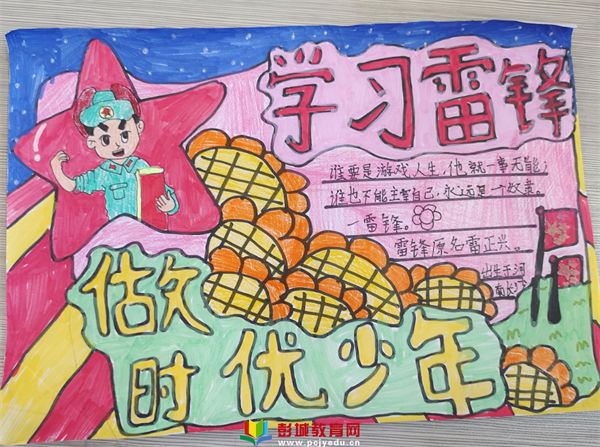 学习雷锋
谁要是游戏人生,他就一事无能;
谁也不能主宰自己,永远是一个奴隶。
一雷锋。
雷锋原名雷正兴。
出生于河
南长沙
做文
时优少年
彭城教育网
www.pcjyedu.cn